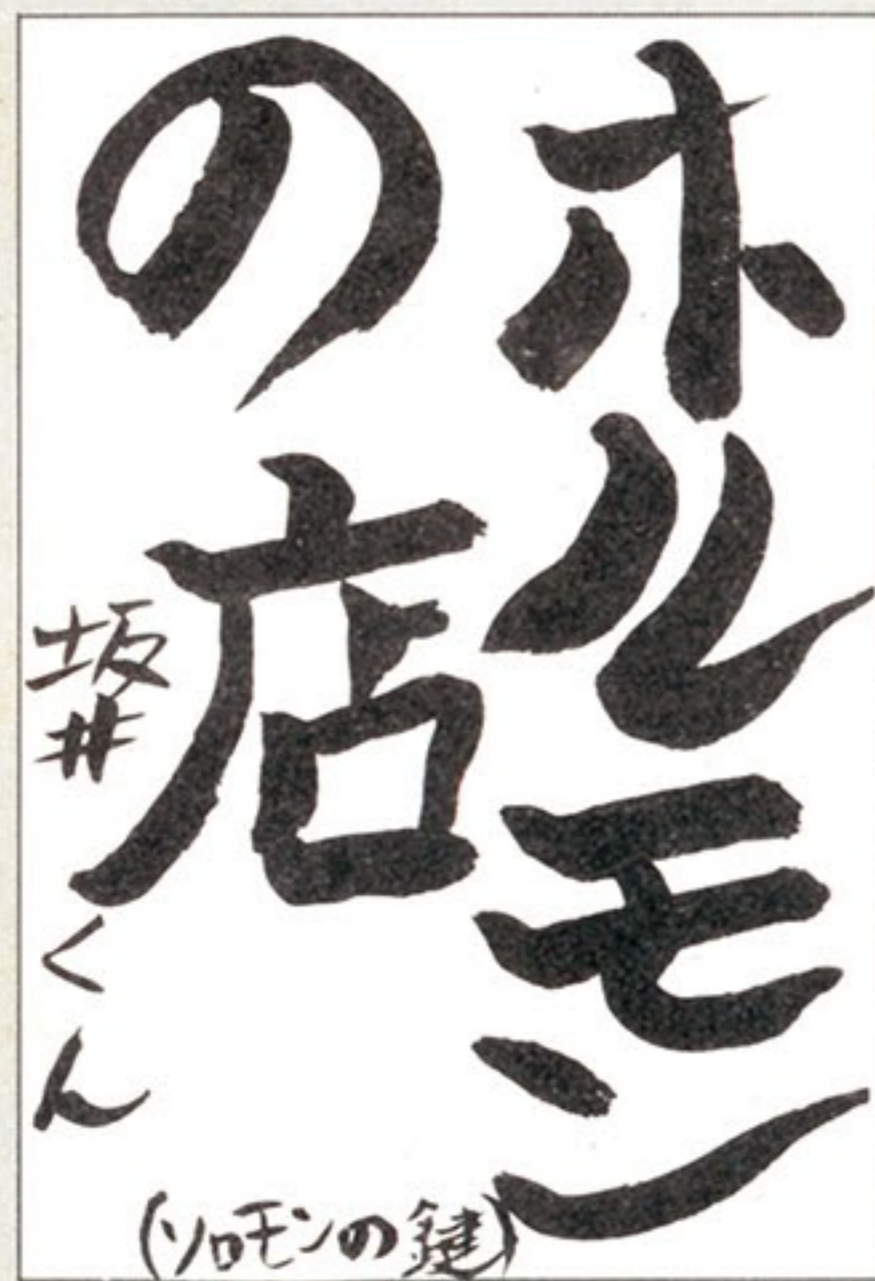 ホルモン
の店
坂井くん
(ソロモンの鍵)